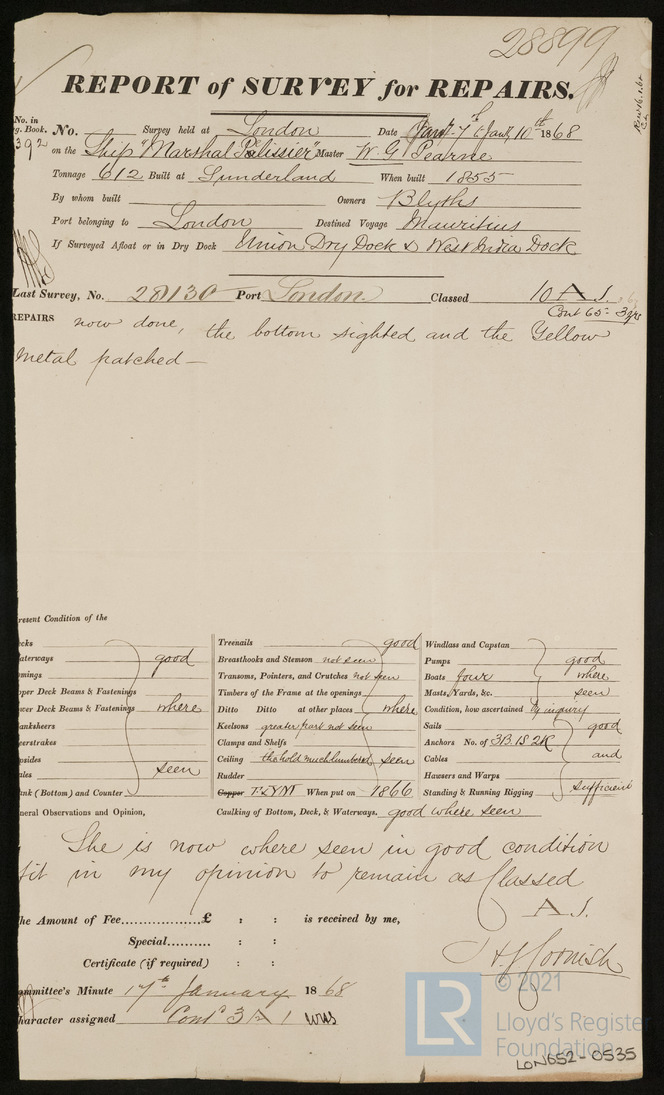 28899
REPORT of SURVEY for REPAIRS.
No. in
g. Book. No. Survey held at London Date Jany 7th & Jany 10th 1868
392 on the Ship "Marshal Pelissier" Master W. G. Pearne
Tonnage 612 Built at Sunderland When built 1855
By whom built Owners Blyths
Port belonging to London Destined Voyage Mauritius
If Surveyed Afloat or in Dry Dock Union Dry Dock & West India Dock
Last Survey, No. 28130 Port London Classed 10 A 1.
Cont 65 - 3 yrs
REPAIRS now done, the bottom sighted and the Yellow
Metal patched —
resent Condition of the
ecks
aterways good
omings
pper Deck Beams & Fastenings
ower Deck Beams & Fastenings where
anksheers
eerstrakes
psides
ales seen
ank (Bottom) and Counter
Treenails good
Breasthooks and Stemson not seen
Transoms, Pointers, and Crutches not seen
Timbers of the Frame at the openings
Ditto Ditto at other places where
Keelsons greater part not seen
Clamps and Shelfs
Ceiling the hold much lumbered seen
Rudder
Copper FLYM When put on 1866
Windlass and Capstan
Pumps good
Boats four where
Masts, Yards, &c. seen
Condition, how ascertained By inquiry
Sails good
Anchors No. of 3B. 1S 2K
Cables and
Hawsers and Warps
Standing & Running Rigging sufficient
neral Observations and Opinion, Caulking of Bottom, Deck, & Waterways. good where seen
She is now where seen in good condition
fit in my opinion to remain as Classed
A 1.
he Amount of Fee..................£ : : is received by me,
Special.......... : :
Certificate (if required) : :
H J Cornish
ommittee's Minute 17th January 1868
haracter assigned Contd 3 A 1
LR
© 2021
Lloyd's Register
Foundation
LON652-0535